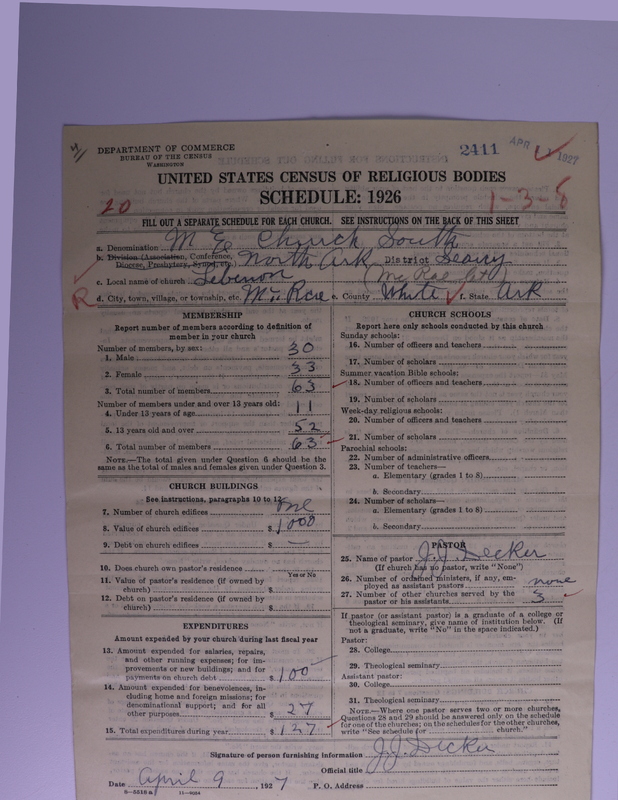 DEPARTMENT OF COMMERCE
BUREAU OF THE CENSUS
WASHINGTON
2411 APR 1927
UNITED STATES CENSUS OF RELIGIOUS BODIES
SCHEDULE: 1926
20
1-3-8
FILL OUT A SEPARATE SCHEDULE FOR EACH CHURCH. SEE INSTRUCTIONS ON THE BACK OF THIS SHEET
a. Denomination M E Church South
b. Division (Association, Conference, Diocese, Presbytery, Synod, etc.) North Ark District Searcy
c. Local name of church Lebenon (McRae Cct)
R d. City, town, village, or township, etc. McRae e. County White f. State Ark
MEMBERSHIP
Report number of members according to definition of
member in your church
Number of members, by sex:
1. Male 30
2. Female 33
3. Total number of members 63
Number of members under and over 13 years old:
4. Under 13 years of age 11
5. 13 years old and over 52
6. Total number of members 63
NOTE.—The total given under Question 6 should be the
same as the total of males and females given under Question 3.
CHURCH BUILDINGS
See instructions, paragraphs 10 to 12
7. Number of church edifices One
8. Value of church edifices $ 1000
9. Debt on church edifices $ —
10. Does church own pastor's residence
Yes or No
11. Value of pastor's residence (if owned by
church) $
12. Debt on pastor's residence (if owned by
church) $
EXPENDITURES
Amount expended by your church during last fiscal year
13. Amount expended for salaries, repairs,
and other running expenses; for im-
provements or new buildings; and for
payments on church debt $ 100
14. Amount expended for benevolences, in-
cluding home and foreign missions; for
denominational support; and for all
other purposes $ 27
15. Total expenditures during year $ 127
CHURCH SCHOOLS
Report here only schools conducted by this church
Sunday schools:
16. Number of officers and teachers
17. Number of scholars
Summer vacation Bible schools:
18. Number of officers and teachers
19. Number of scholars
Week-day religious schools:
20. Number of officers and teachers
21. Number of scholars
Parochial schools:
22. Number of administrative officers
23. Number of teachers—
a. Elementary (grades 1 to 8)
b. Secondary
24. Number of scholars—
a. Elementary (grades 1 to 8)
b. Secondary
PASTOR
25. Name of pastor J.J. Decker
(If church has no pastor, write "None")
26. Number of ordained ministers, if any, em-
ployed as assistant pastors none
27. Number of other churches served by the
pastor or his assistants 3
If pastor (or assistant pastor) is a graduate of a college or
theological seminary, give name of institution below. (If
not a graduate, write "No" in the space indicated.)
Pastor:
28. College
29. Theological seminary
Assistant pastor:
30. College
31. Theological seminary
NOTE.—Where one pastor serves two or more churches,
Questions 28 and 29 should be answered only on the schedule
for one of the churches; on the schedules for the other churches,
write "See schedule for church."
Signature of person furnishing information J.J. Decker
Official title
Date April 9, 1927 P. O. Address
8-5518a 11-9034